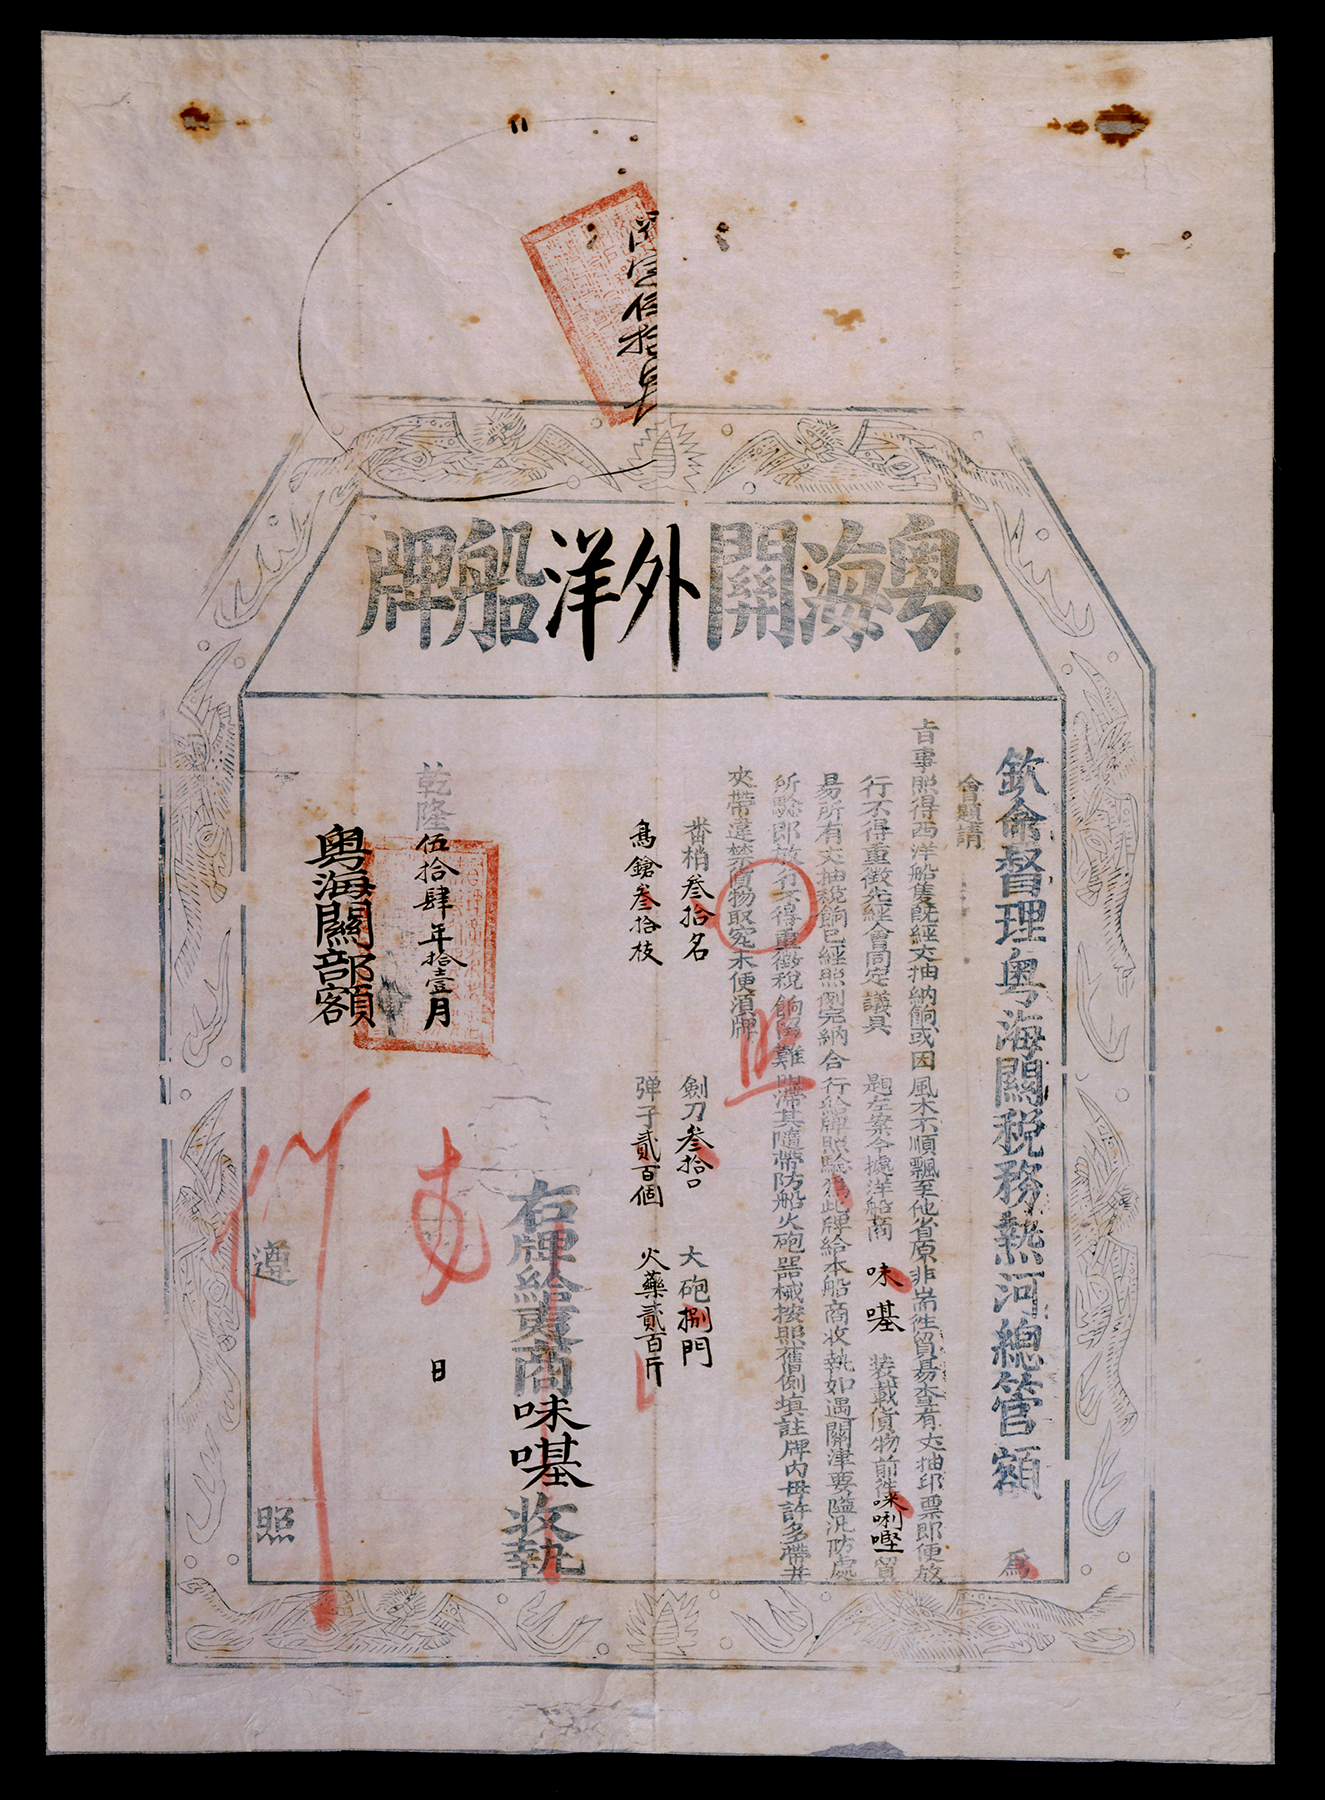 粤海關外洋船牌
欽命督理粤海關税務熱河總管額 為
會題請
旨事照得西洋船隻既經丈抽納餉或因風水不順飄至他省原非常徃貿易查有丈抽印票即便放
行不得重徵先經會同定議具 題在案今據洋船商 味 嘅 装載貨物前徃 咪唎㗴 貿
易所有丈抽税餉已經照例完納合行給牌照驗為此牌給本船商收執如遇關津要隘汛防處
所驗即放行不得重徵税餉留難阻滯其隨帶防船火砲器械按照舊例填註牌内毋許多帶并
夾帶違禁貨物取究未便湏牌
番梢叁拾名 劍刀叁拾口 大砲捌門
鳥鎗叁拾枝 弹子貳百個 火藥貳百斤
照
右牌給夷商 收執
乾隆伍拾肆年拾壹月 日
粤海關部額
遵 照